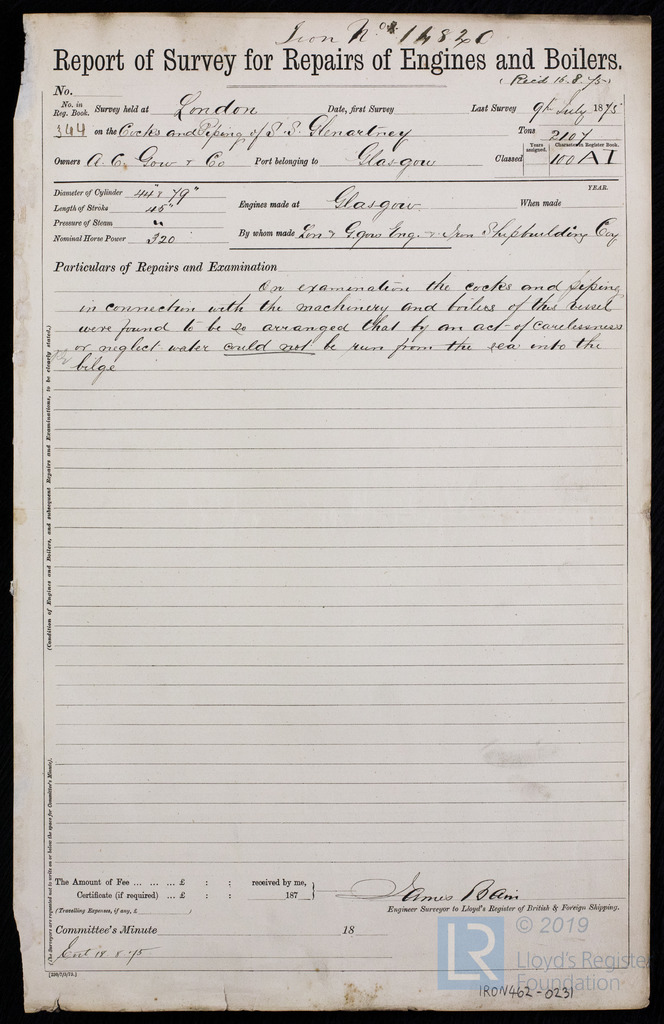 Iron No. 14820
Report of Survey for Repairs of Engines and Boilers.
(Recd 16.8.75)
No.
No. in Reg. Book. Survey held at London Date, first Survey Last Survey 9th July 1875
344 on the Cocks and Piping of S.S. Glenartney Tons 2107
Owners A. C. Gow & Co Port belonging to Glasgow Classed Years assigned. 100 Character in Register Book. A I
Diameter of Cylinder 44" & 79"
Length of Stroke 45"
Pressure of Steam "
Nominal Horse Power 320
Engines made at Glasgow When made YEAR.
By whom made Lon & Glgow Eng. & Iron Shipbuilding Coy
Particulars of Repairs and Examination
On examination the cocks and piping
in connection with the machinery and boilers of this vessel
were found to be so arranged that by an act of carelessness
or neglect water could not be run from the sea into the
bilge
(Condition of Engines and Boilers, and subsequent Repairs and Examinations, to be clearly stated.)
(The Surveyors are requested not to write on or below the space for Committee's Minute.)
The Amount of Fee ... ... ... £ : : received by me,
Certificate (if required) ... £ : : 187
(Travelling Expenses, if any, £ )
James Bain
Engineer Surveyor to Lloyd's Register of British & Foreign Shipping.
Committee's Minute 18
18.8.75
© 2019
LR
Lloyd's Register
Foundation
IRON462-0231